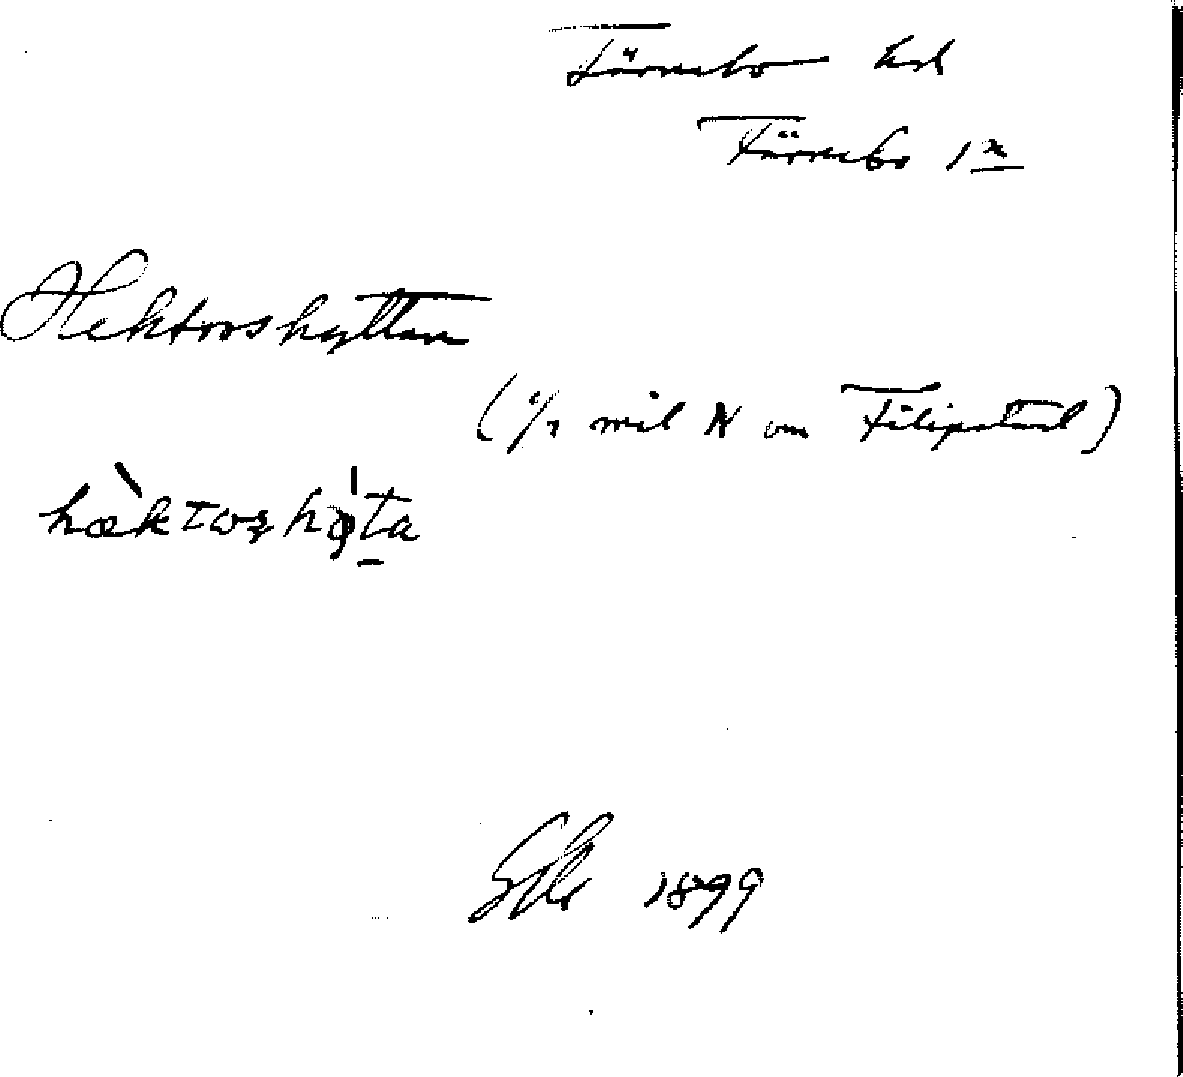 Färnebo hd
Färnebo 1x
Hektorshyttan
(1/2 mil N om Filipstad)
hæktorshyta
1899